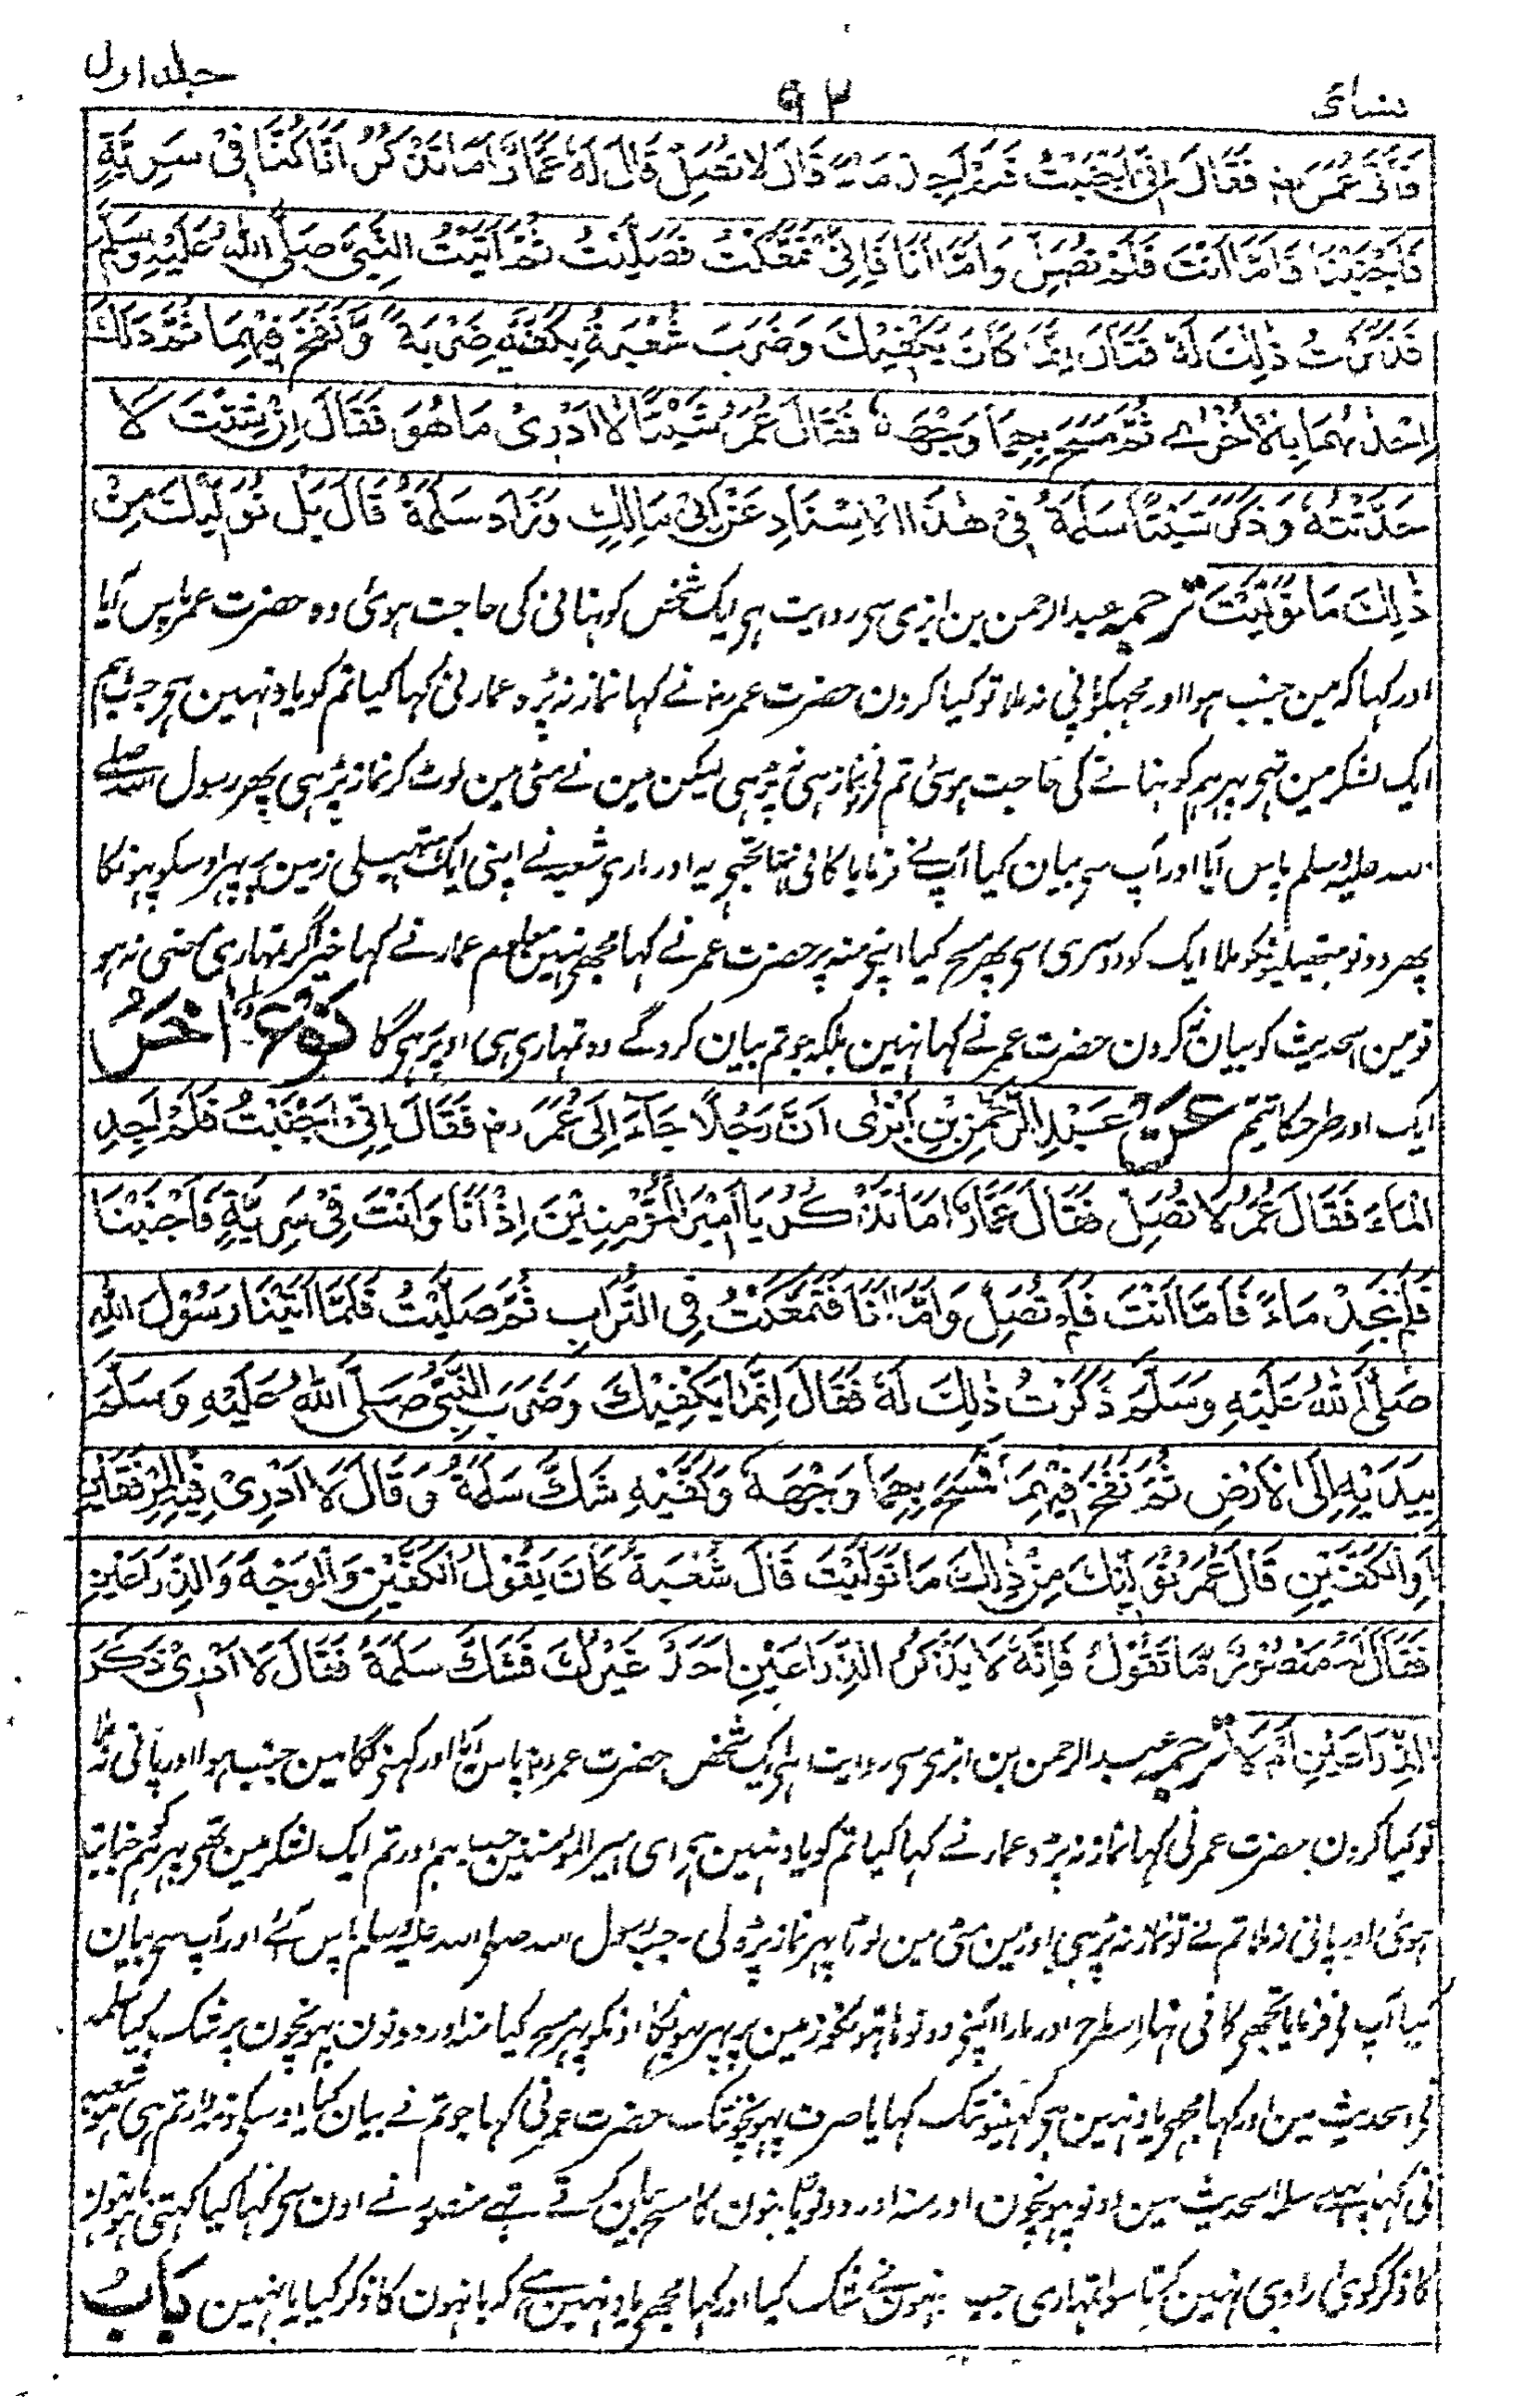 نسائی ۹۲ جلد اول
فَاَتٰی عُمَرَ رضہ فَقَالَ اِنِّیْ اَجْنَبْتُ فَلَمْ اَجِدْ مَاءً قَالَ لَا تُصَلِّ قَالَ لَهٗ عَمَّارٌ اَمَا تَذْكُرُ اَنَّا كُنَّا فِیْ سَرِیَّةٍ
فَاَجْنَبْنَا فَاَمَّا اَنْتَ فَلَمْ تُصَلِّ وَاَمَّا اَنَا فَاِنِّیْ تَمَعَّكْتُ فَصَلَّیْتُ ثُمَّ اَتَیْتُ النَّبِیَّ صَلَّی اللّٰهُ عَلَیْهِ وَسَلَّمَ
فَذَكَرْتُ ذٰلِكَ لَهٗ فَقَالَ اِنَّمَا كَانَ یَكْفِیْكَ وَضَرَبَ شُعْبَةُ بِكَفَّیْهِ ضَرْبَةً وَّنَفَخَ فِیْهِمَا ثُمَّ دَلَكَ
اِحْدٰىهُمَا بِالْاُخْرٰی ثُمَّ مَسَحَ بِهِمَا وَجْهَهٗ فَقَالَ عُمَرُ شَیْئًا لَا اَدْرِیْ مَا هُوَ فَقَالَ اِنْ شِئْتَ لَا
حَدَّثْتُهٗ وَذَكَرَ شَیْئًا سَلَمَةُ فِیْ هٰذَا الْاِسْنَادِ عَنْ اَبِیْ مَالِكٍ وَزَادَ سَلَمَةُ قَالَ بَلْ نُوَلِّیْكَ مِنْ
ذٰلِكَ مَا تَوَلَّیْتَ ترجمہ عبدالرحمن بن ابزی سی روایت ہی ایک شخص کو نہانی کی حاجت ہوئی وہ حضرت عمر پاس آیا
اور کہا کہ مین جنب ہوا اور مجہکو پانی نہ ملا تو کیا کرون حضرت عمر رضہ نے کہا نماز نہ پڑہ عمار نی کہا کیا تم کو یاد نہین ہی جب ہم
ایک لشکر مین تہی پہر ہم کو نہانے کی حاجت ہوئی تم نی نماز ہی نہ پڑہی لیکن مین نے مٹی مین لوٹ کر نماز پڑہی پھر رسول اللہ صلے
اللہ علیہ وسلم پاس آیا اور آپ سی بیان کیا آپ نے فرمایا کافی تہا تجہی یہ اور ماری شعبہ نے اپنی ایک ہتھیلی زمین پر پہر اوسکو پہونکا
پھر دونو ہتھیلیونکو ملا ایک کو دوسری سی پھر مسح کیا اپنی منہ پر حضرت عمر نے کہا مجھی نہین معلوم عمار نے کہا خیر اگر تمہاری مرضی نہ ہو
تو مین اسحدیث کو بیان نہ کرون حضرت عمر نے کہا نہین بلکہ جو تم بیان کروگے وہ تمہاری ہی اوپر ہی گا نَوْعٌ اٰخَرُ
ایک اور طرحکا تیمم عَنْ عَبْدِ الرَّحْمٰنِ بْنِ اَبْزٰی اَنَّ رَجُلًا جَآءَ اِلَی عُمَرَ رضہ فَقَالَ اِنِّیْ اَجْنَبْتُ فَلَمْ اَجِدِ
الْمَاءَ فَقَالَ عُمَرُ لَا تُصَلِّ فَقَالَ عَمَّارٌ اَمَا تَذْكُرُ یَا اَمِیْرَ الْمُؤْمِنِیْنَ اِذْ اَنَا وَاَنْتَ فِیْ سَرِیَّةٍ فَاَجْنَبْنَا
فَلَمْ نَجِدْ مَاءً فَاَمَّا اَنْتَ فَلَمْ تُصَلِّ وَاَمَّا اَنَا فَتَمَعَّكْتُ فِی التُّرَابِ ثُمَّ صَلَّیْتُ فَلَمَّا اَتَیْنَا رَسُوْلَ اللّٰهِ
صَلَّی اللّٰهُ عَلَیْهِ وَسَلَّمَ ذَكَرْتُ ذٰلِكَ لَهٗ فَقَالَ اِنَّمَا یَكْفِیْكَ وَضَرَبَ النَّبِیُّ صَلَّی اللّٰهُ عَلَیْهِ وَسَلَّمَ
بِیَدَیْهِ اِلَی الْاَرْضِ ثُمَّ نَفَخَ فِیْهِمَا فَمَسَحَ بِهِمَا وَجْهَهٗ وَكَفَّیْهِ شَكَّ سَلَمَةُ وَقَالَ لَا اَدْرِیْ فِیْهِ اِلَی الْمِرْفَقَیْنِ
اَوِ الْكَفَّیْنِ قَالَ عُمَرُ نُوَلِّیْكَ مِنْ ذٰلِكَ مَا تَوَلَّیْتَ قَالَ شُعْبَةُ كَانَ یَقُوْلُ الْكَفَّیْنِ وَالْوَجْهَ وَالذِّرَاعَیْنِ
فَقَالَ لَهٗ مَنْصُوْرٌ مَّا تَقُوْلُ فَاِنَّهٗ لَا یَذْكُرُ الذِّرَاعَیْنِ اَحَدٌ غَیْرُكَ فَشَكَّ سَلَمَةُ فَقَالَ لَا اَدْرِیْ ذَكَرَ
الذِّرَاعَیْنِ اَمْ لَا ترجمہ عبدالرحمن بن ابزی سی روایت ہی ایک شخص حضرت عمر رضہ پاس آیا اور کہنی لگا مین جنب ہوا اور پانی نہ ملا
تو کیا کرون حضرت عمر نی کہا نماز نہ پڑہ عمار نے کہا کیا تم کو یاد نہین ہی ای امیر المؤمنین جب ہم اور تم ایک لشکر مین تھی پہر ہم کو جنابت
ہوئی اور پانی نہ ملا تم نے تو نماز نہ پڑہی اور مین مٹی مین لوٹا پہر نماز پڑہ لی ۔ جب رسول اللہ صلی اللہ علیہ وسلم پاس آئے اور آپ سی بیان
کیا آپ نی فرمایا تجھی کافی تہا اسطرح اور مارا اپنی دونو ہاتہونکو زمین پر پہر پہونکا اونکو پہر مسح کیا منہ اور دونون پہونچون پر شک کیا سلمہ
نی اسحدیث مین اور کہا مجہی یاد نہین ہی کہنیونتک کہا یا صرف پہونچونتک حضرت عمر نی کہا جو تم نے بیان کیا اوسکا ذمہ دار تم ہی ہو شعبہ
نی کہا پہلے سلمہ اسحدیث مین دونو پہونچون اور منہ اور دونو بانہون کا مسح بیان کرتے تہے منصور نے اون سی کہا کیا کہتی ہو بانہون
کا ذکر کوئی راوی نہین کرتا سوا تمہاری جب انہون نے شک کیا اور کہا مجھے یاد نہین ہے کہ بانہون کا ذکر کیا یا نہین بَابُ